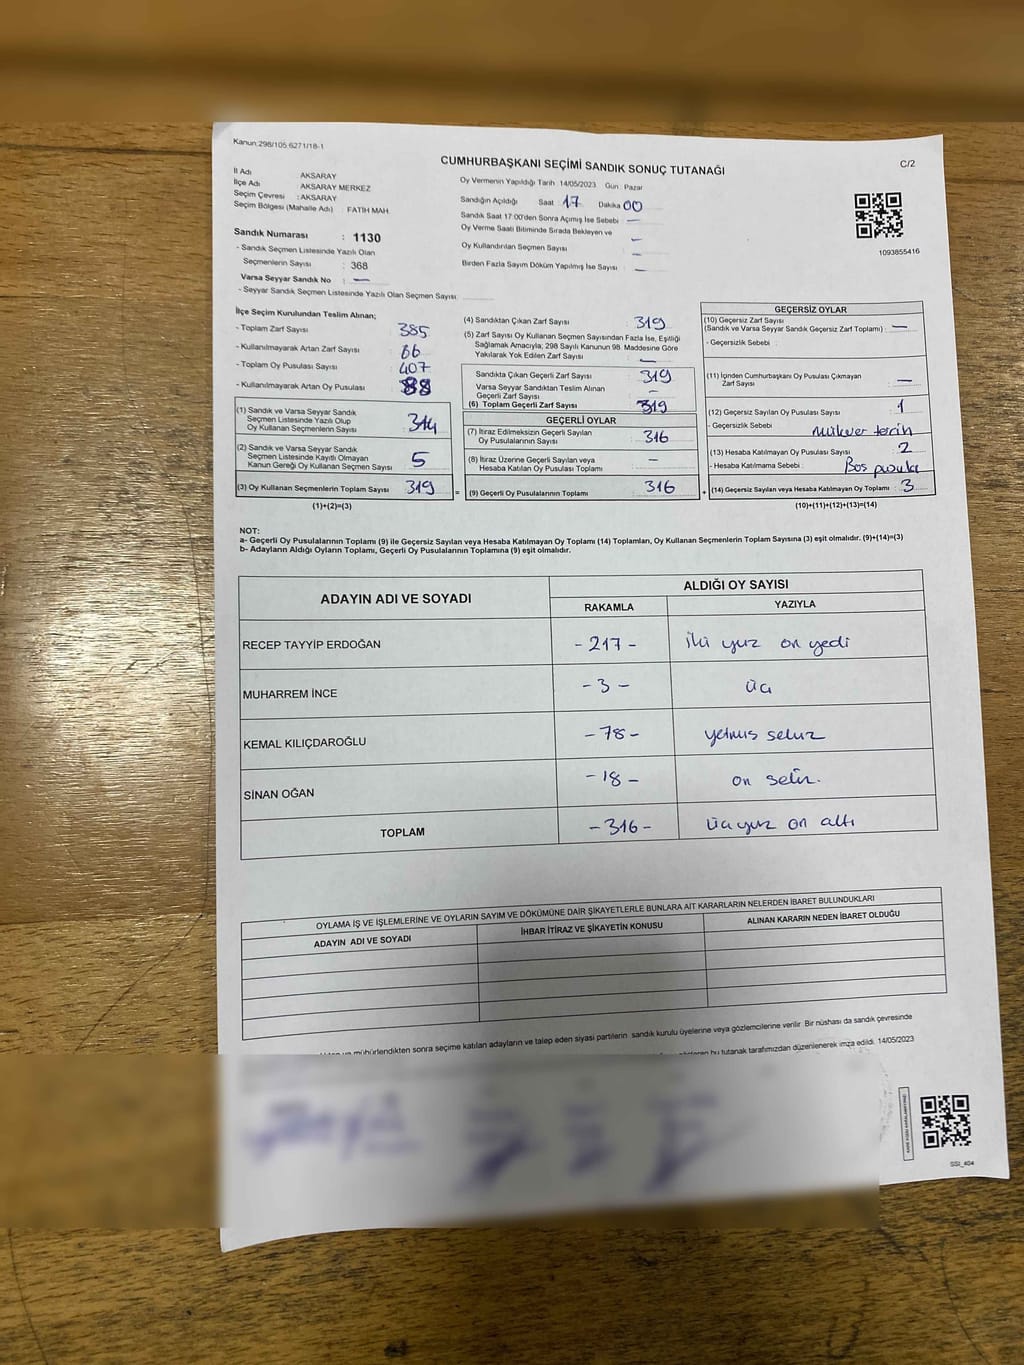 Kanun:298/105,6271/18-1
C/2
CUMHURBAŞKANI SEÇİMİ SANDIK SONUÇ TUTANAĞI
İl Adı : AKSARAY
İlçe Adı : AKSARAY MERKEZ
Seçim Çevresi : AKSARAY
Seçim Bölgesi (Mahalle Adı) : FATİH MAH.
Sandık Numarası : 1130
- Sandık Seçmen Listesinde Yazılı Olan
Seçmenlerin Sayısı : 368
Varsa Seyyar Sandık No : —
- Seyyar Sandık Seçmen Listesinde Yazılı Olan Seçmen Sayısı:
Oy Vermenin Yapıldığı Tarih 14/05/2023 Gün : Pazar
Sandığın Açıldığı Saat : 17 Dakika 00
Sandık Saat 17:00'den Sonra Açmış İse Sebebi —
Oy Verme Saati Bitiminde Sırada Bekleyen ve
Oy Kullandırılan Seçmen Sayısı —
Birden Fazla Sayım Döküm Yapılmış İse Sayısı : —
1093855416
İlçe Seçim Kurulundan Teslim Alınan;
- Toplam Zarf Sayısı : 385
- Kullanılmayarak Artan Zarf Sayısı : 66
- Toplam Oy Pusulası Sayısı : 407
- Kullanılmayarak Artan Oy Pusulası : 88
(1) Sandık ve Varsa Seyyar Sandık
Seçmen Listesinde Yazılı Olup
Oy Kullanan Seçmenlerin Sayısı : 314
(2) Sandık ve Varsa Seyyar Sandık
Seçmen Listesinde Kayıtlı Olmayan
Kanun Gereği Oy Kullanan Seçmen Sayısı : 5
(3) Oy Kullanan Seçmenlerin Toplam Sayısı : 319
(1)+(2)=(3)
(4) Sandıktan Çıkan Zarf Sayısı : 319
(5) Zarf Sayısı Oy Kullanan Seçmen Sayısından Fazla İse, Eşitliği
Sağlamak Amacıyla; 298 Sayılı Kanunun 98. Maddesine Göre
Yakılarak Yok Edilen Zarf Sayısı : —
Sandıkta Çıkan Geçerli Zarf Sayısı : 319
Varsa Seyyar Sandıktan Teslim Alınan
Geçerli Zarf Sayısı : —
(6) Toplam Geçerli Zarf Sayısı : 319
GEÇERLİ OYLAR
(7) İtiraz Edilmeksizin Geçerli Sayılan
Oy Pusulalarının Sayısı : 316
(8) İtiraz Üzerine Geçerli Sayılan veya
Hesaba Katılan Oy Pusulası Toplamı : —
= (9) Geçerli Oy Pusulalarının Toplamı : 316 +
GEÇERSİZ OYLAR
(10) Geçersiz Zarf Sayısı
(Sandık ve Varsa Seyyar Sandık Geçersiz Zarf Toplamı) : —
- Geçersizlik Sebebi :
(11) İçinden Cumhurbaşkanı Oy Pusulası Çıkmayan
Zarf Sayısı : —
(12) Geçersiz Sayılan Oy Pusulası Sayısı : 1
- Geçersizlik Sebebi :
(13) Hesaba Katılmayan Oy Pusulası Sayısı : 2
- Hesaba Katılmama Sebebi : Boş pusula
(14) Geçersiz Sayılan veya Hesaba Katılmayan Oy Toplamı : 3
(10)+(11)+(12)+(13)=(14)
NOT:
a- Geçerli Oy Pusulalarının Toplamı (9) ile Geçersiz Sayılan veya Hesaba Katılmayan Oy Toplamı (14) Toplamları, Oy Kullanan Seçmenlerin Toplam Sayısına (3) eşit olmalıdır. (9)+(14)=(3)
b- Adayların Aldığı Oyların Toplamı, Geçerli Oy Pusulalarının Toplamına (9) eşit olmalıdır.
ADAYIN ADI VE SOYADI
ALDIĞI OY SAYISI
RAKAMLA YAZIYLA
RECEP TAYYİP ERDOĞAN - 217 - iki yüz on yedi
MUHARREM İNCE - 3 - üç
KEMAL KILIÇDAROĞLU - 78 - yetmiş sekiz
SİNAN OĞAN - 18 - on sekiz.
TOPLAM - 316 - üç yüz on altı
OYLAMA İŞ VE İŞLEMLERİNE VE OYLARIN SAYIM VE DÖKÜMÜNE DAİR ŞİKAYETLERLE BUNLARA AİT KARARLARIN NELERDEN İBARET BULUNDUKLARI
ADAYIN ADI VE SOYADI İHBAR İTİRAZ VE ŞİKAYETİN KONUSU ALINAN KARARIN NEDEN İBARET OLDUĞU
mühürlendikten sonra seçime katılan adayların ve talep eden siyasi partilerin sandık kurulu üyelerine veya gözlemcilerine verilir. Bir nüshası da sandık çevresinde
bu tutanak tarafımızdan düzenlenerek imza edildi. 14/05/2023
SSI_404